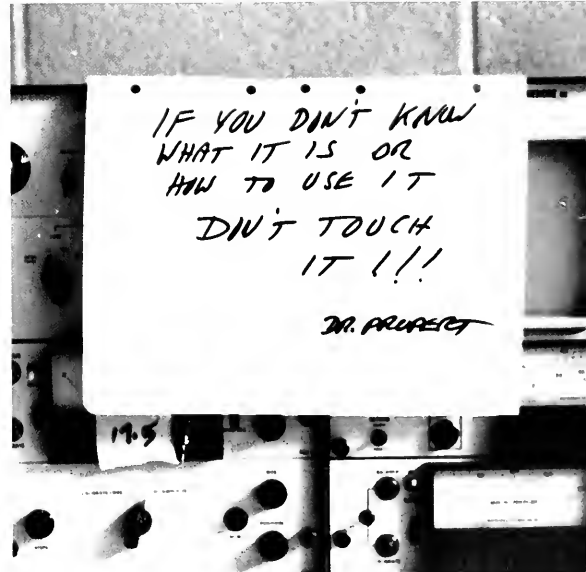 IF YOU DON'T KNOW
WHAT IT IS OR
HOW TO USE IT
DON'T TOUCH
IT !!!
DR. PROPERT
19.5